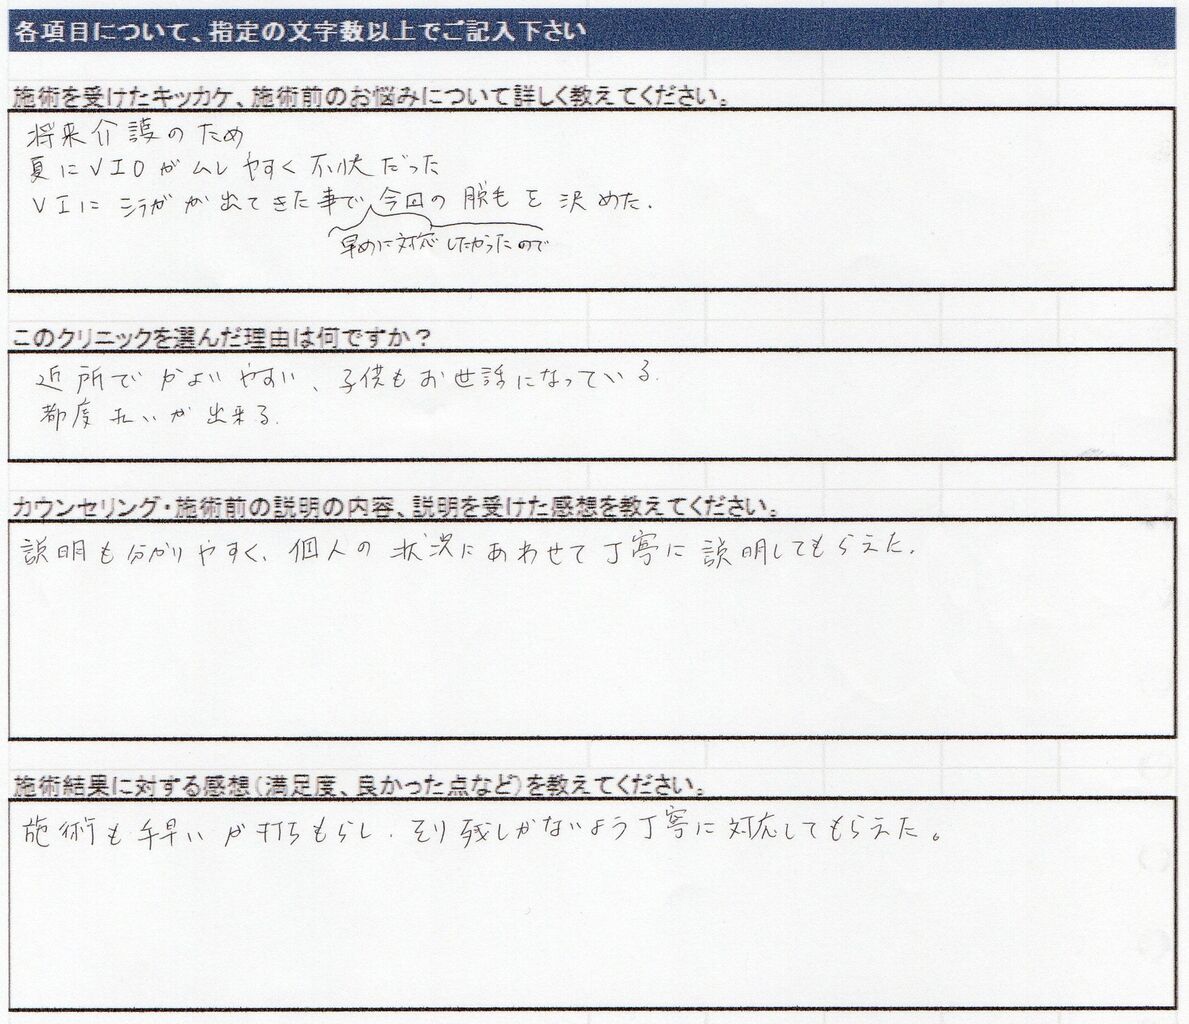 各項目について、指定の文字数以上でご記入下さい
施術を受けたキッカケ、施術前のお悩みについて詳しく教えてください。
将来介護のため
夏にVIOがムレやすく不快だった
VIにシラガが出てきた事で今回の脱毛を決めた.
早めに対応したかったので
このクリニックを選んだ理由は何ですか？
近所でかよいやすい、子供もお世話になっている.
都度払いが出来る.
カウンセリング・施術前の説明の内容、説明を受けた感想を教えてください。
説明も分かりやすく、個人の状況にあわせて丁寧に説明してもらえた.
施術結果に対する感想（満足度、良かった点など）を教えてください。
施術も手早いが打ちもらし、そり残しがないよう丁寧に対応してもらえた。